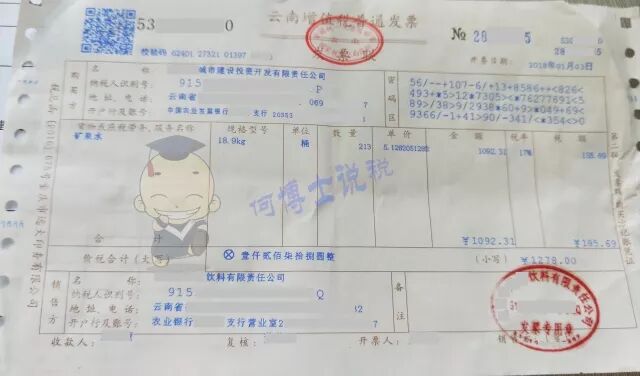 53 0
云南增值税普通发票
№ 20 5
发票联
校验码 62401 27321 01397
20 5
开票日期: 2018年01月03日
购买方
城市建设投资开发有限责任公司
纳税人识别号: 915 P
地址、电话: 云南省 069 7
开户行及账号: 中国农业发展银行 支行 20353 1
密码区
56/--+107-6/+13+8586++<826<
493+*5>12*7305><*76277691<5
89>/38>9/2938*60+9>*049+69<
9366/-1+41>90/-341/<*354<>0
货物或应税劳务、服务名称 规格型号 单位 数量 单价 金额 税率 税额
矿泉水 18.9kg 桶 213 5.1282051282 1092.31 17% 185.69
何博士说税
合计 ¥1092.31 ¥185.69
价税合计(大写) ⊗壹仟贰佰柒拾捌圆整 (小写) ¥1278.00
销售方
名称: 饮料有限责任公司
纳税人识别号: 915 Q
地址、电话: 云南省 12
开户行及账号: 农业银行 支行营业室2 7
备注
饮料有限责任公司
发票专用章
收款人: 复核: 开票人: 销